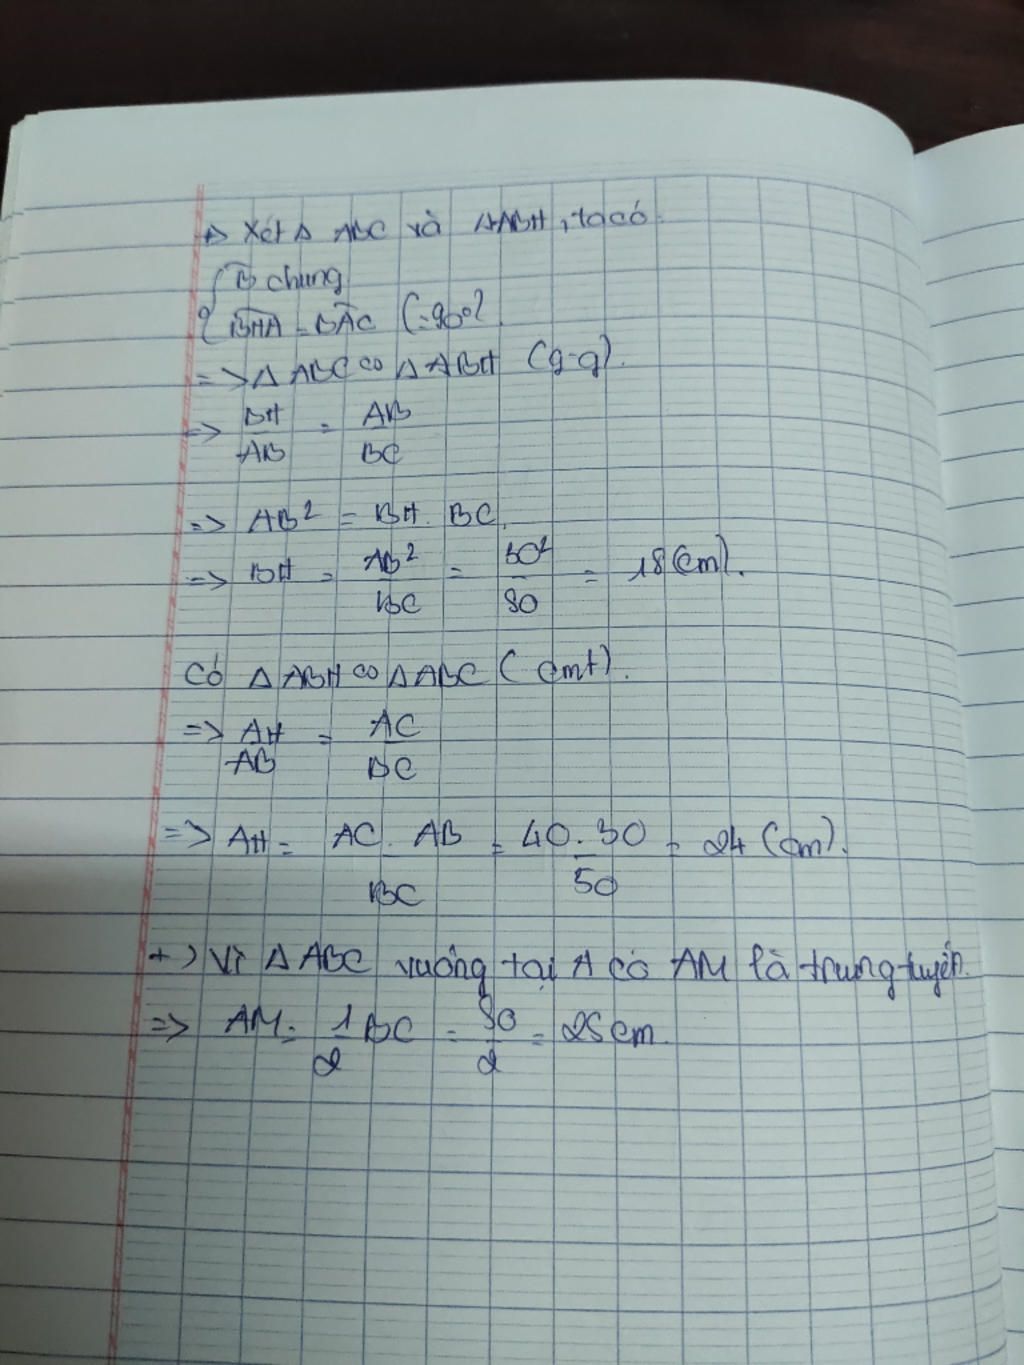 +) Xét Δ ABC và ΔABH, ta có
{ B̂ chung
{ BHA = BAC (=90°)
=> Δ ABC ∽ Δ ABH (g-g).
=> BH/AB = AB/BC
=> AB² = BH. BC.
=> BH = AB²/BC = 30²/50 = 18(cm).
Có Δ ABH ∽ ΔABC (cmt).
=> AH/AB = AC/BC
=> AH = AC. AB/BC = 40.30/50 = 24 (cm).
+) Vì Δ ABC vuông tại A có AM là trung tuyến.
=> AM = 1/2 BC = 50/2 = 25cm.